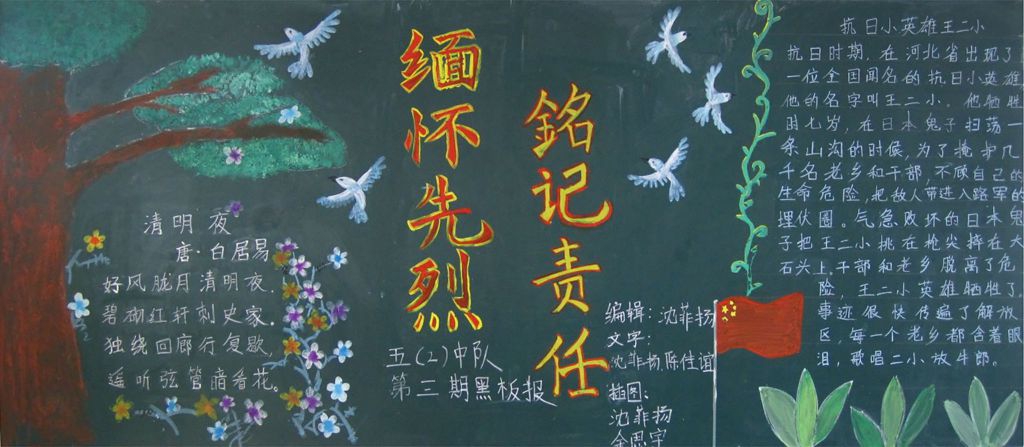 清明夜
唐·白居易
好风胧月清明夜，
碧砌红轩刺史家。
独绕回廊行复歇，
遥听弦管暗看花。
缅怀先烈
銘记责任
五(2)中队
第三期黑板报
编辑：沈菲扬
文字：
沈菲扬，陈佳谊
插图：
沈菲扬
余思宇
抗日小英雄王二小
抗日时期，在河北省出现了
一位全国闻名的抗日小英雄，
他的名字叫王二小。他牺牲
时七岁，在日本鬼子扫荡一
条山沟的时候，为了掩护几
千名老乡和干部，不顾自己的
生命危险，把敌人带进入路军的
埋伏圈。气急败坏的日本鬼
子把王二小挑在枪尖摔在大
石头上，干部和老乡脱离了危
险，王二小英雄牺牲了，
事迹很快传遍了解放
区，每一个老乡都含着眼
泪，歌唱二小放牛郎。